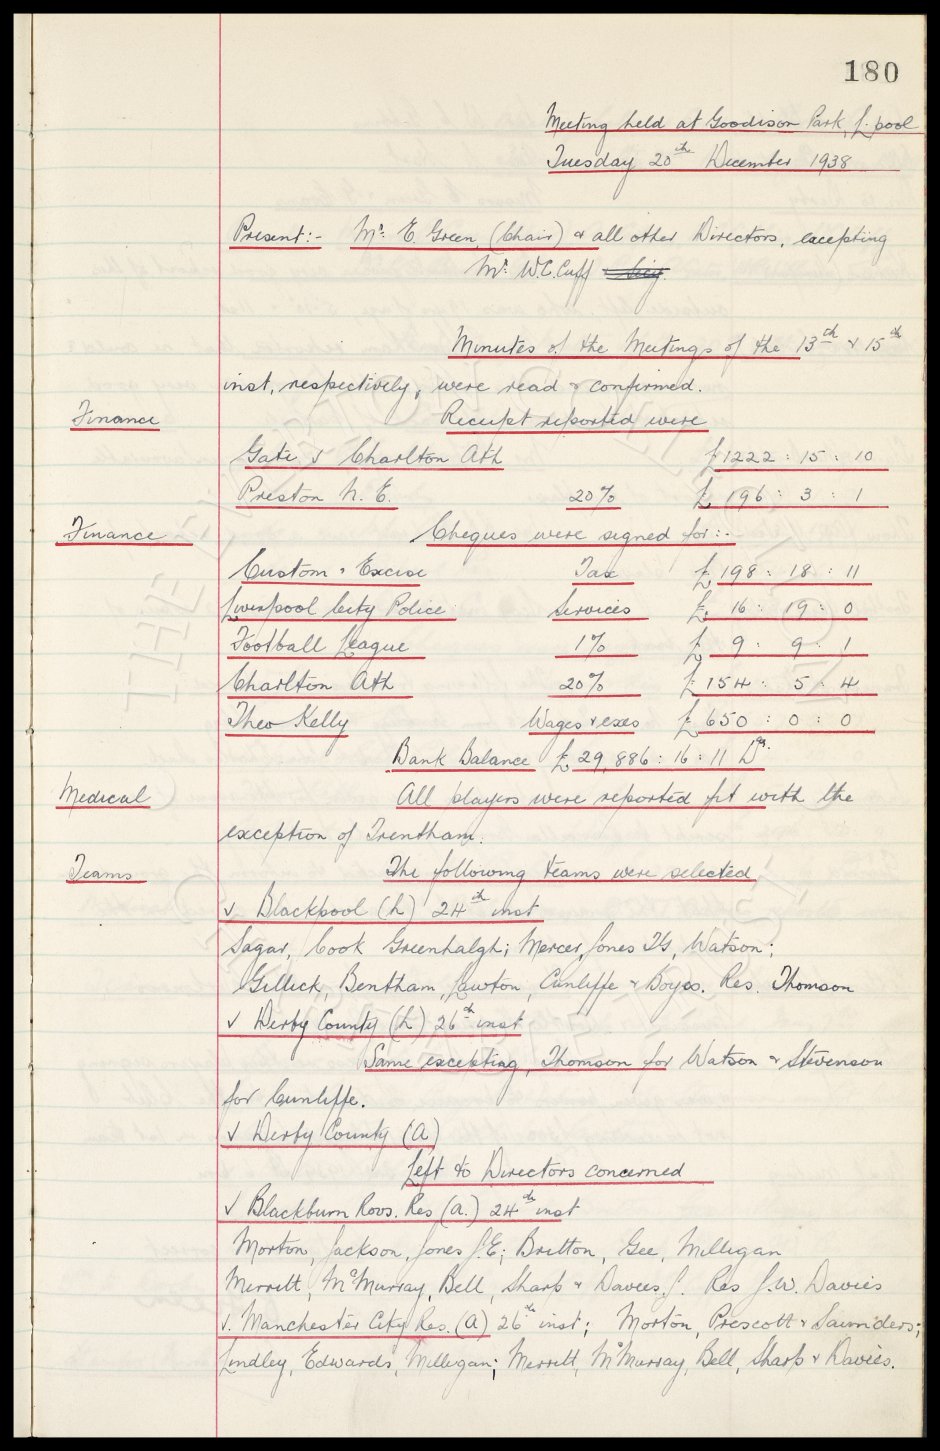 180
Meeting held at Goodison Park, L.pool
Tuesday 20th December 1938
Present:- Mr. E. Green, (Chair) & all other Directors, excepting
Mr. W.C. Cuff
Minutes of the Meetings of the 13th & 15th
inst, respectively, were read & confirmed.
Finance Receipt reported were
Gate v Charlton Ath £1222 : 15 : 10
Preston N. E. 20% £ 196 : 3 : 1
Finance Cheques were signed for :-
Custom & Excise Tax £ 198 : 18 : 11
Liverpool City Police Services £ 16 : 19 : 0
Football League 1% £ 9 : 9 : 1
Charlton Ath 20% £ 154 : 5 : 4
Theo Kelly Wages & exes £ 650 : 0 : 0
Bank Balance £ 29,886 : 16 : 11 Dr.
Medical All players were reported fit with the
exception of Trentham.
Teams The following teams were selected
v Blackpool (h) 24th inst
Sagar, Cook Greenhalgh; Mercer, Jones TG, Watson;
Gillick, Bentham, Lawton, Cunliffe & Boyes. Res. Thomson
v Derby County (h) 26th inst
Same excepting, Thomson for Watson & Stevenson
for Cunliffe.
v Derby County (A)
Left to Directors concerned
v Blackburn Rovs. Res (a.) 24th inst
Morton, Jackson, Jones J.E; Britton, Gee, Milligan
Merritt, McMurray, Bell, Sharp & Davies J. Res J.W. Davies
v. Manchester City Res. (A) 26th inst; Morton, Prescott & Saunders;
Lindley, Edwards, Milligan; Merritt, McMurray, Bell, Sharp & Davies.